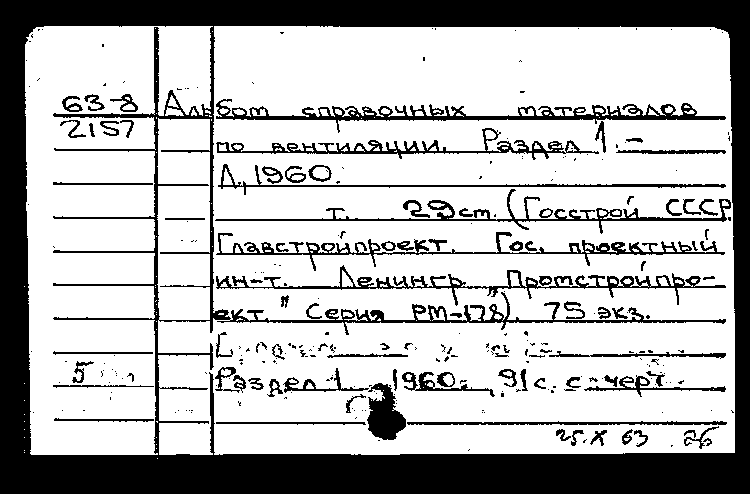 63-8 Альбом справочных материалов
2157
по вентиляции. Раздел 1. –
Л., 1960.
т. 29 cm. (Госстрой СССР
Главстройпроект. Гос. проектный
ин-т. Ленингр „Промстройпро-
ект." Серия РМ-178). 75 экз.
5
Раздел 1 1960. , 91 с. с черт.
25.X 63 26